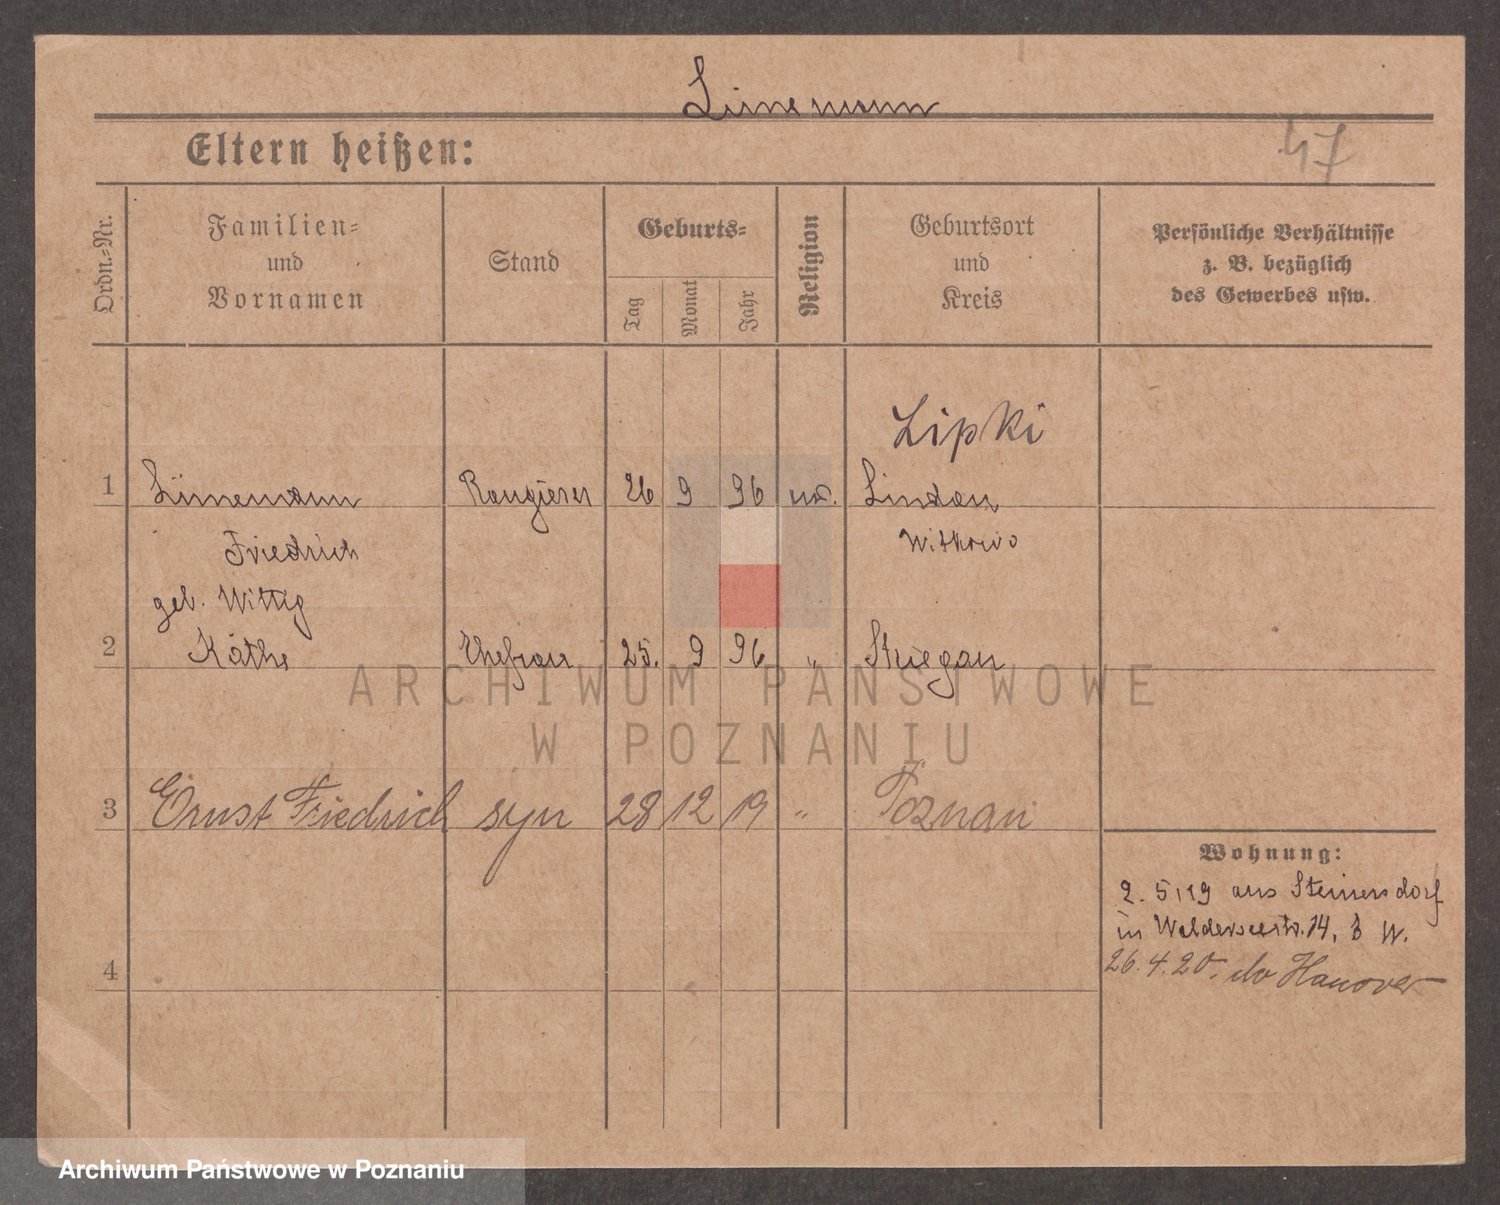 Lünemann
Eltern heißen:
47
Ordn.-Nr.
Familien-
und
Vornamen
Stand
Geburts-
Tag
Monat
Jahr
Religion
Geburtsort
und
Kreis
Persönliche Verhältnisse
z. B. bezüglich
des Gewerbes usw.
Lipki
1 Lünemann Rangierer 26 9 96 Lindau
Friedrich Witkowo
geb. Wittig
2 Käthe Ehefrau 25. 9 96 " Striegau
ARCHIWUM PAŃSTWOWE
W POZNANIU
3 Ernst Friedrich syn 28 12 19 " Poznań
Wohnung:
2. 5. 19 aus Steinersdorf
in Walderseestr. 14, b W.
26. 4. 20. do Hanover
4
Archiwum Państwowe w Poznaniu